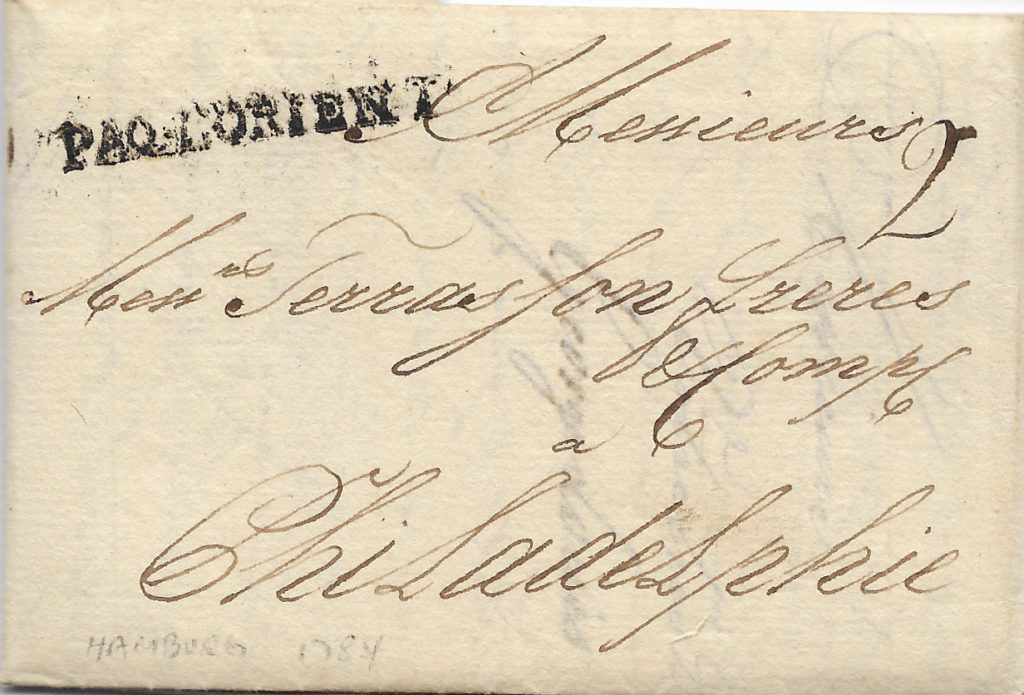 PAQ.L'ORIENT
Messieurs
2
Mess.rs Terrasson freres
& Comp
a
Philadelphie
HAMBURG 1784